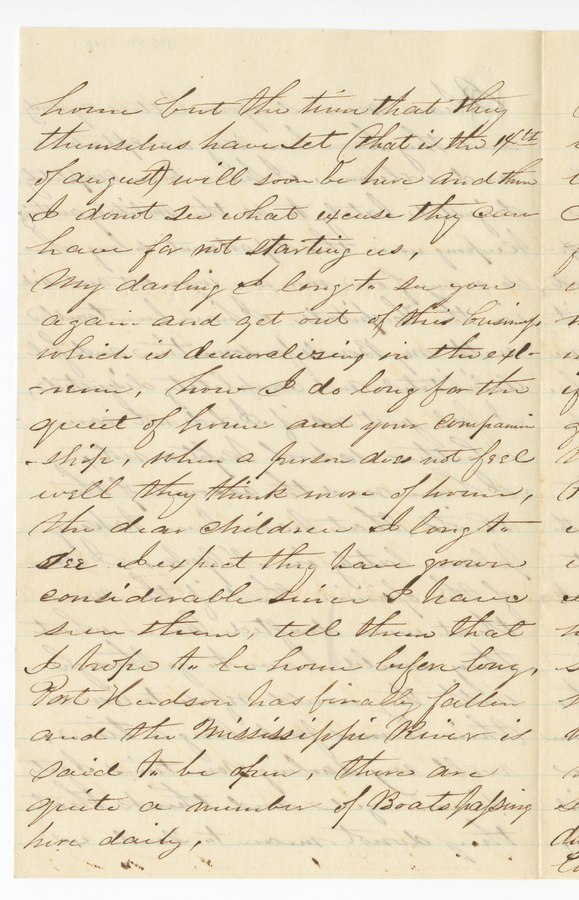 home but the time that they
themselves have set (that is the 14th
of august) will soon be here and then
I donot see what excuse they can
have for not starting us,
My darling I long to see you
again and get out of this business
which is demoralizing in the ext-
-reme, how I do long for the
quiet of home and your companion
-ship, when a person does not feel
well they think more of home,
the dear children I long to
see I expect they have grown
considerable since I have
seen them, tell them that
I hope to be home before long,
Port Hudson has finally fallen
and the Mississippi River is
said to be open, there are
quite a number of Boats passing
here daily,